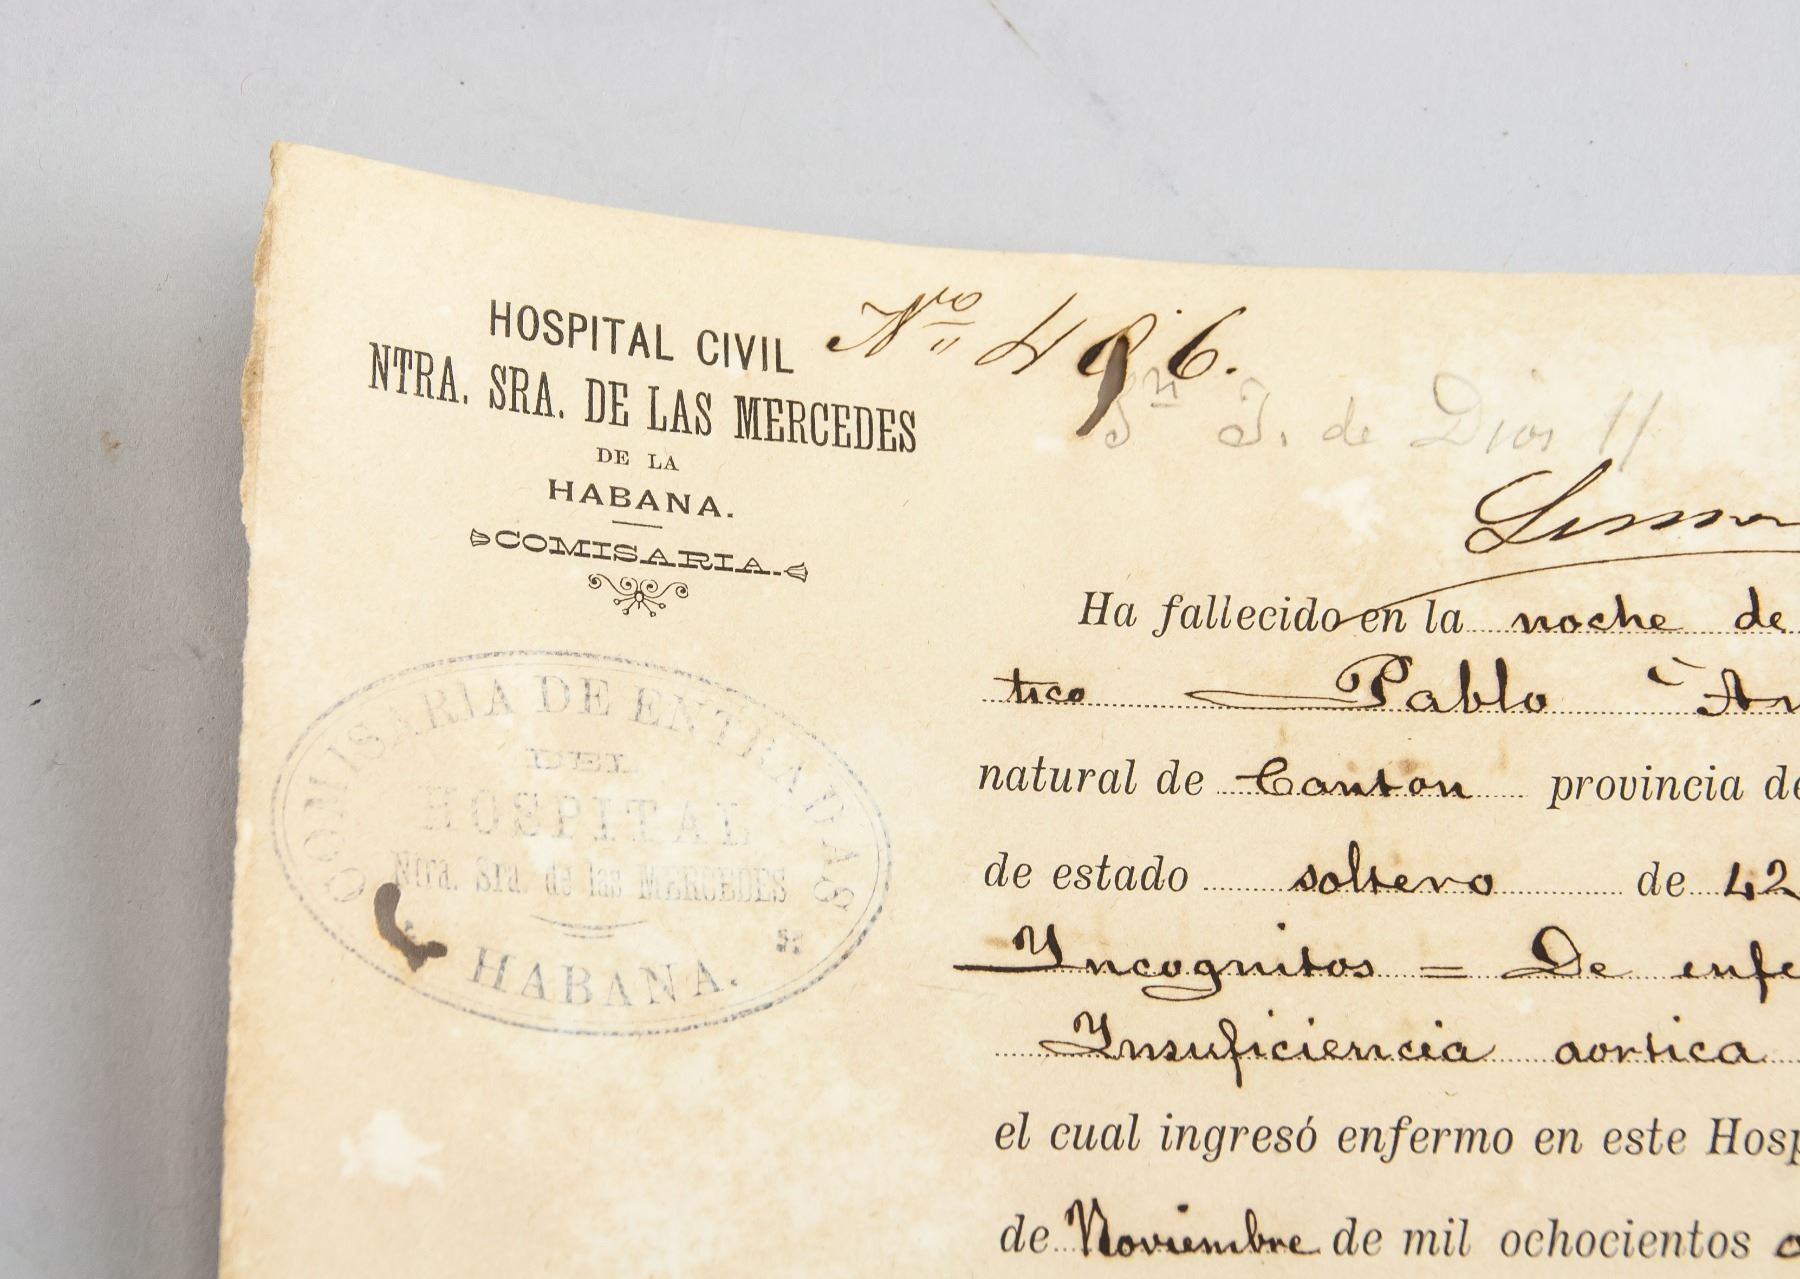 HOSPITAL CIVIL
NTRA. SRA. DE LAS MERCEDES
DE LA
HABANA.
COMISARIA.
Nro 496.
Sn J. de Dios 11
Ha fallecido en la noche de
tico Pablo
natural de Canton provincia de
de estado soltero de 42
Yncognitos = De enfe
Ynsuficiencia aortica
el cual ingresó enfermo en este Hosp
de Noviembre de mil ochocientos
COMISARIA DE ENTRADAS
DEL
HOSPITAL
Ntra. Sra. de las MERCEDES
HABANA.